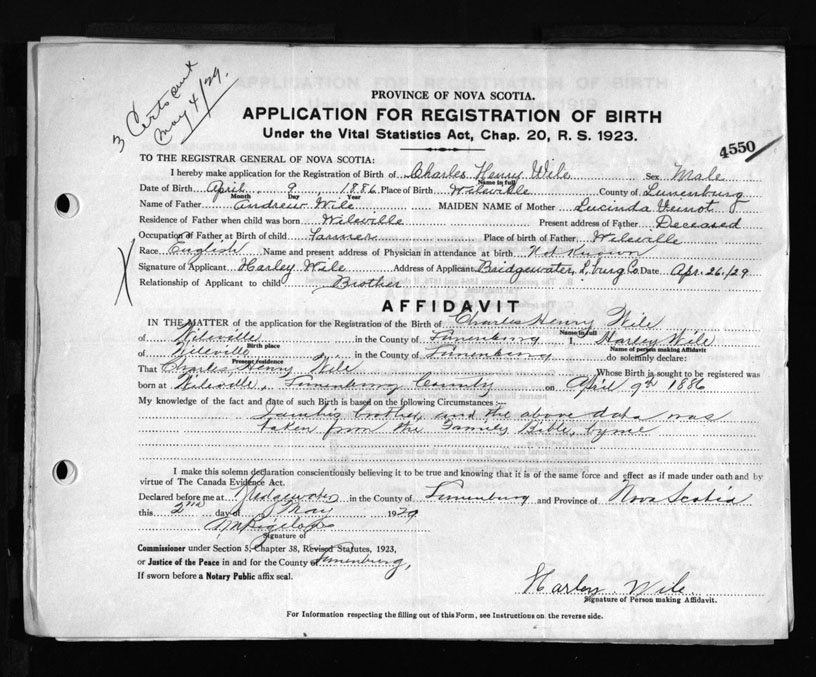 3 Certs sent
May 4/29.
PROVINCE OF NOVA SCOTIA.
APPLICATION FOR REGISTRATION OF BIRTH
Under the Vital Statistics Act, Chap. 20, R. S. 1923.
4550
TO THE REGISTRAR GENERAL OF NOVA SCOTIA:
I hereby make application for the Registration of Birth of Charles Henry Wile Sex Male
Name in full
Date of Birth April 9 1886 Place of Birth Wileville County of Lunenburg
Month Day Year
Name of Father Andrew Wile MAIDEN NAME of Mother Lucinda Veinot
Residence of Father when child was born Wileville Present address of Father Deceased
Occupation of Father at Birth of child Farmer Place of birth of Father Wileville
Race English Name and present address of Physician in attendance at birth Not Known
Signature of Applicant Harley Wile Address of Applicant Bridgewater, L'burg Co Date Apr. 26/29
Relationship of Applicant to child Brother
AFFIDAVIT
IN THE MATTER of the application for the Registration of the Birth of Charles Henry Wile
Name in full
of Wileville in the County of Lunenburg I, Harley Wile
Birth place Name of person making Affidavit
of Wileville in the County of Lunenburg do solemnly declare:
Present residence
That Charles Henry Wile Whose Birth is sought to be registered was
born at Wileville, Lunenburg County on April 9th 1886
My knowledge of the fact and date of such Birth is based on the following Circumstances:—
I am his brother, and the above data was
taken from the Family Bible, by me
I make this solemn declaration conscientiously believing it to be true and knowing that it is of the same force and effect as if made under oath and by
virtue of The Canada Evidence Act.
Declared before me at Bridgewater in the County of Lunenburg and Province of Nova Scotia
this 2nd day of May 1929
Signature of
Commissioner under Section 5, Chapter 38, Revised Statutes, 1923,
or Justice of the Peace in and for the County of Lunenburg,
If sworn before a Notary Public affix seal.
Harley Wile
Signature of Person making Affidavit.
For Information respecting the filling out of this Form, see Instructions on the reverse side.